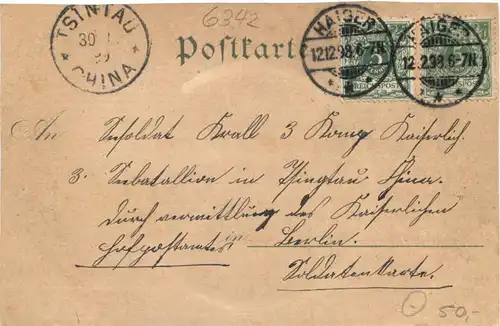 6342
TSINTAU
30
CHINA
Postkarte
HAIGER
12.12.98.6-7N.
HAIGER
12.12.98.6-7N.
5
REICHSPOST
An Seesoldat Krall 3 Komp Kaiserlich.
3. Seebatallion in Tsingtau China.
Durch vermittlung des Kaiserlichen
Hofpostamtes in Berlin.
Soldatenkarte.
50,-